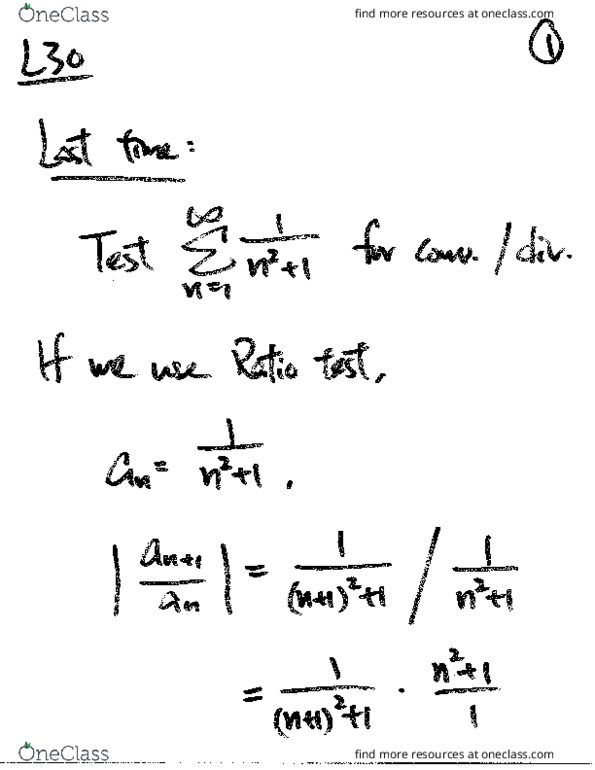 OneClass find more resources at oneclass.com
L30 ①
Last time:
Test ∑_{n=1}^{∞} 1/(n²+1) for conv. / div.
If we use Ratio test,
aₙ = 1/(n²+1) ,
| aₙ₊₁ / aₙ | = 1/((n+1)²+1) / 1/(n²+1)
= 1/((n+1)²+1) · (n²+1)/1
OneClass find more resources at oneclass.com